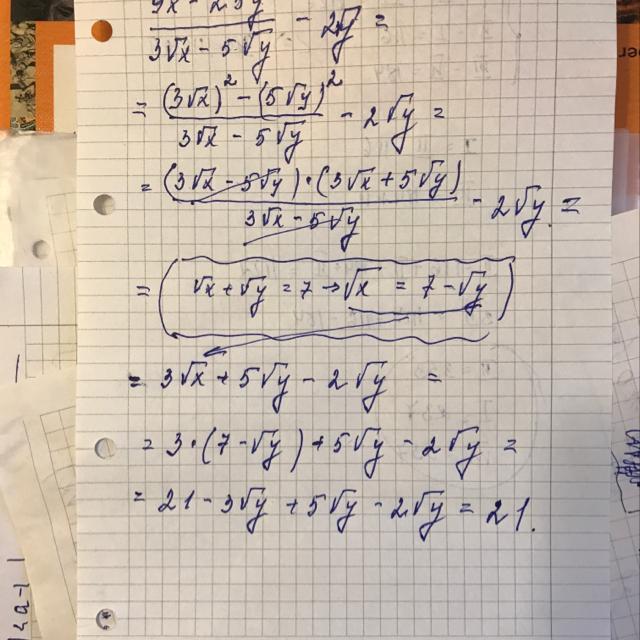 9x - 25y
3√x - 5√y - 2√y =
= (3√x)² - (5√y)²
3√x - 5√y - 2√y =
= (3√x - 5√y) · (3√x + 5√y)
3√x - 5√y - 2√y =
= (√x + √y = 7 → √x = 7 - √y)
= 3√x + 5√y - 2√y =
= 3 · (7 - √y) + 5√y - 2√y =
= 21 - 3√y + 5√y - 2√y = 21.